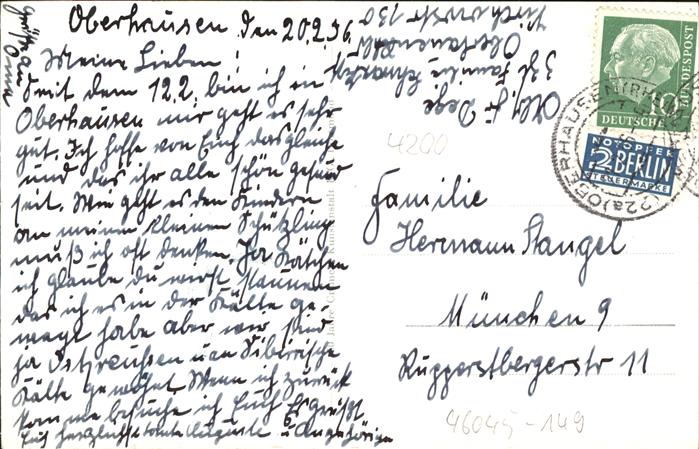 Oberhausen den 20.2.56.
Meine Lieben!
Seit dem 12.2. bin ich in
Oberhausen mir geht es sehr
gut. Ich hoffe von Euch das gleiche
und das ihr alle schön gesund
seit. Wie geht es den Kindern
an meinen kleinen Schützling
muß ich oft denken. Ja Kätchen
ich glaube du wirst staunen
das ich es in der Kälte ge-
wagt habe aber wir sind
ja Ostpreußen u an Sibirische
Kälte gewöhnt. Wenn ich zurück
komme besuche ich Euch Es grüßt
Euch herzlichst Tante Auguste u Angehörige
Grüßt an
Oma
Abs. Fr
Familie
Oberhausen
Kirchnerstr 130
4200
DEUTSCHE BUNDESPOST
10
NOTOPFER
2 BERLIN
STEUERMARKE
(22a) OBERHAUSEN (RHEINL
Familie
Hermann Stangel
München 9
Rupperstbergerstr 11
46045-149